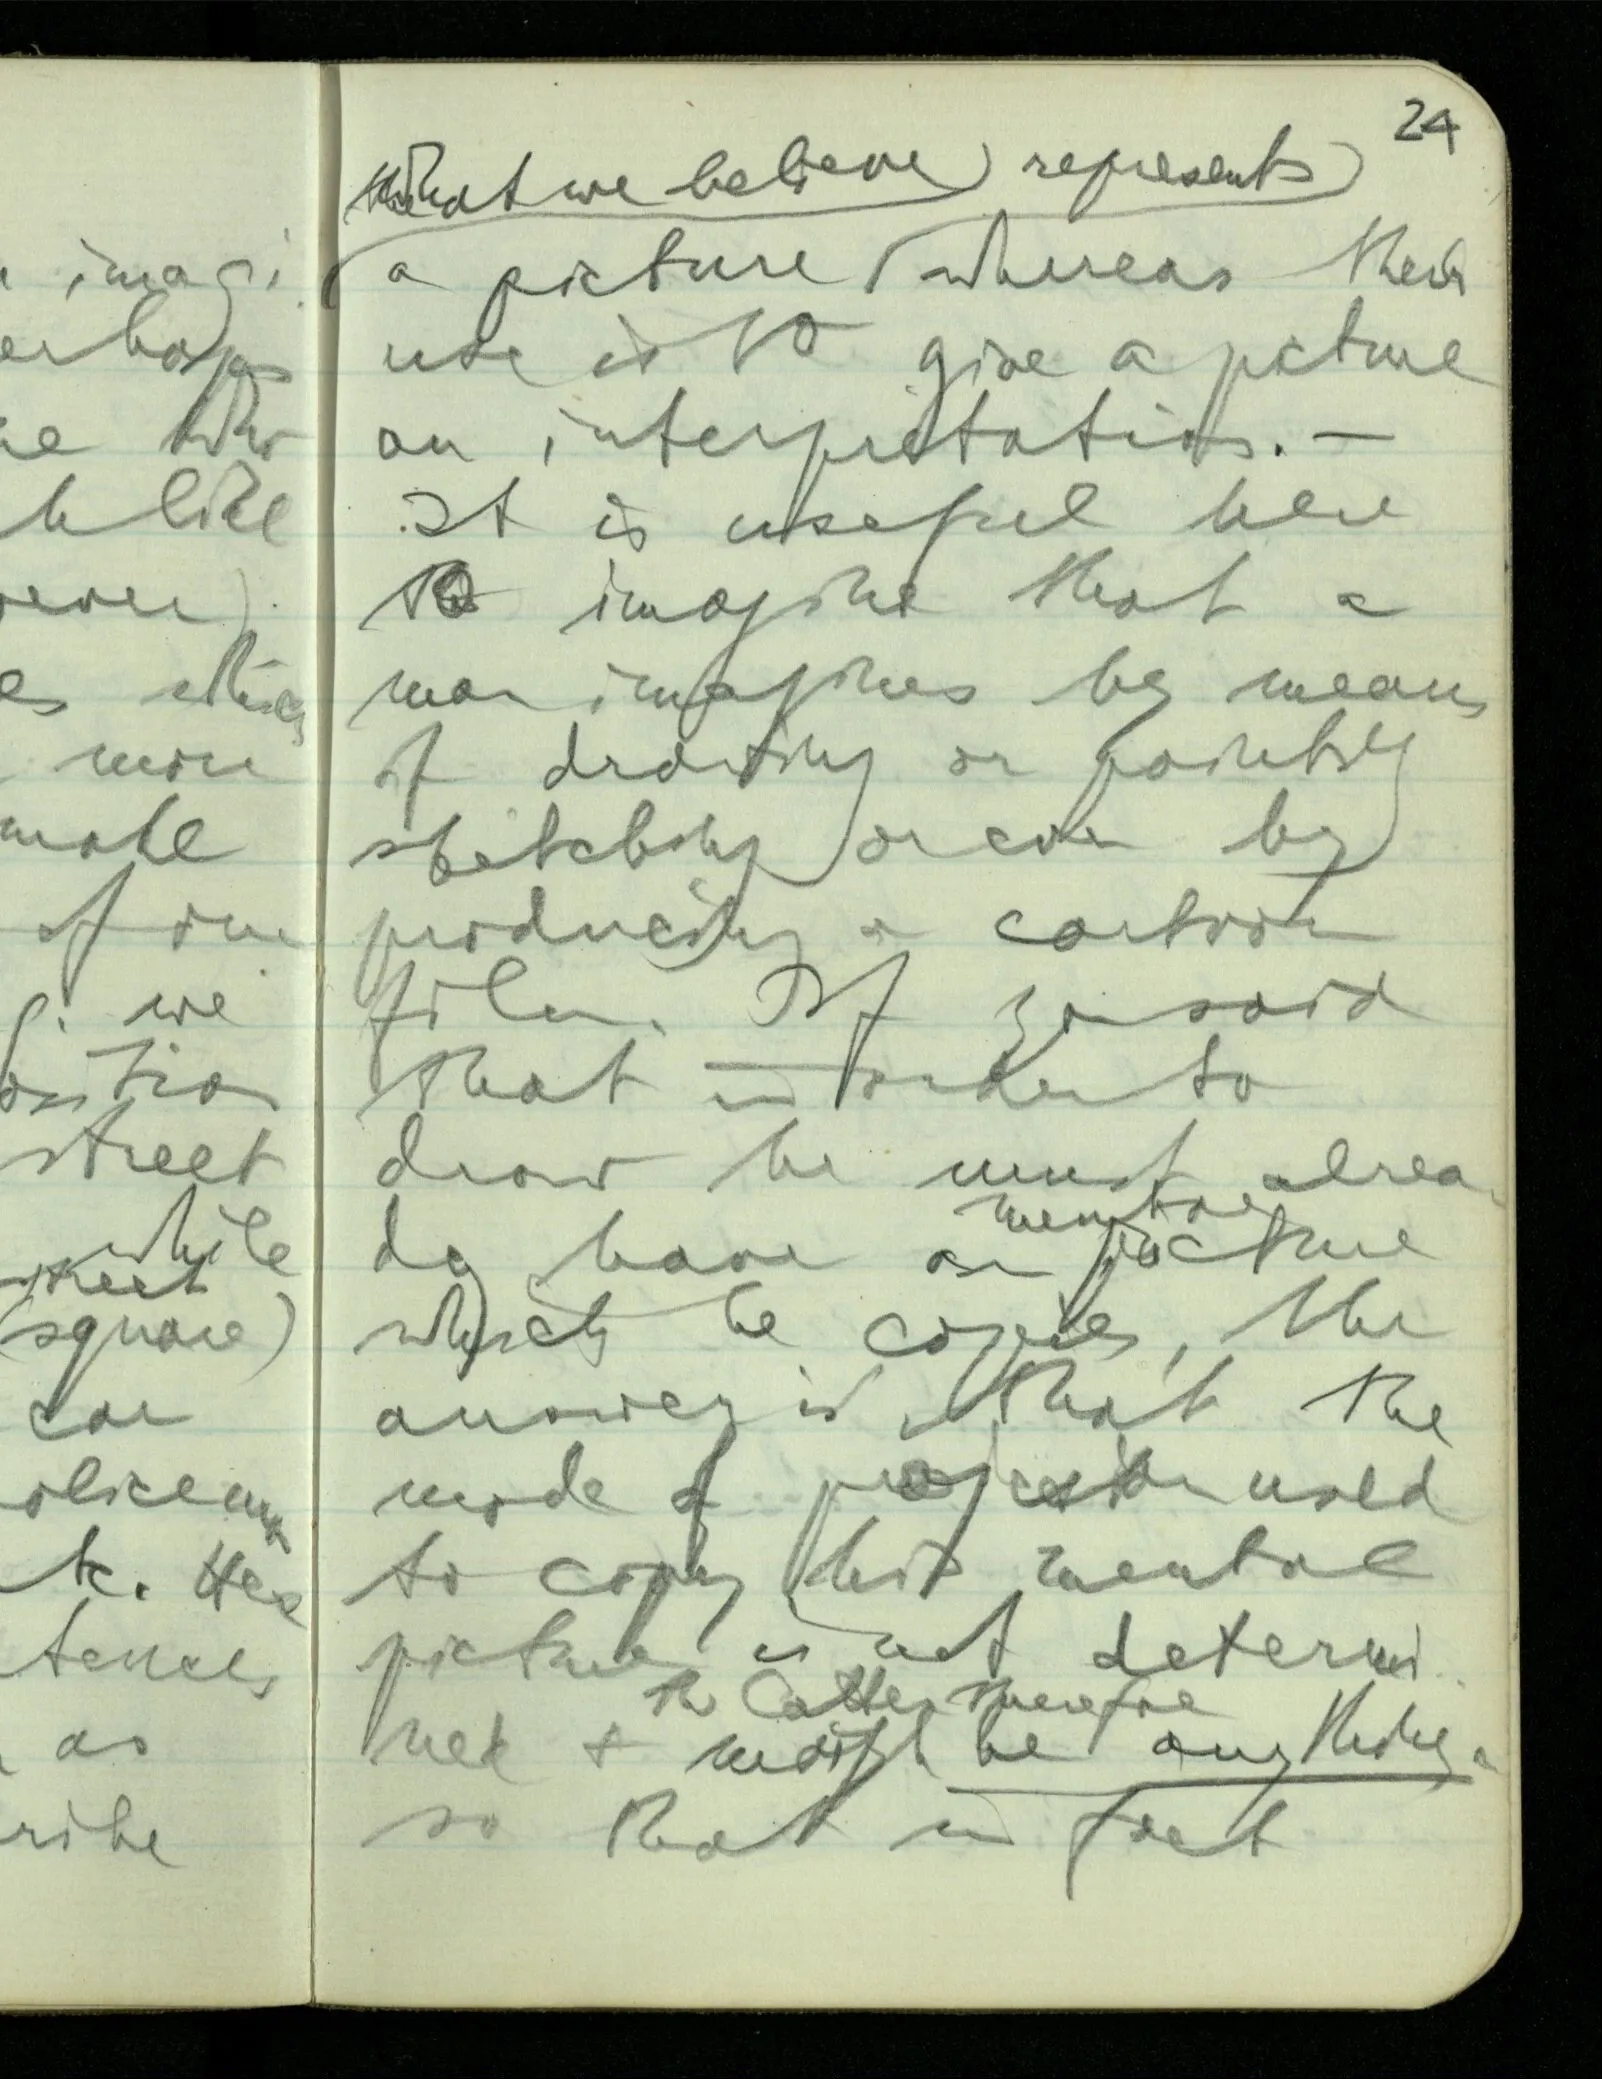 imagi
erhaps
e who
b like
ever)
es
more
make
of our
we
osition
street
while
street
(square)
can
oliceman
tc. Her
tences
as
ribe
24
that we believe) represents)
a picture (whereas their
use is to give a picture
an interpretation. —
It is useful here
to imagine that a
man imagines by means
of drawing or painting
sketching or even by
producing a cartoon
film. If you said
that in order to
draw he must alrea-
mental
dy have a picture
which he copies, the
answer is, that the
mode of projection used
to copy his mental
picture is not determi
the latter therefore
ned & might be anything
so that in fact